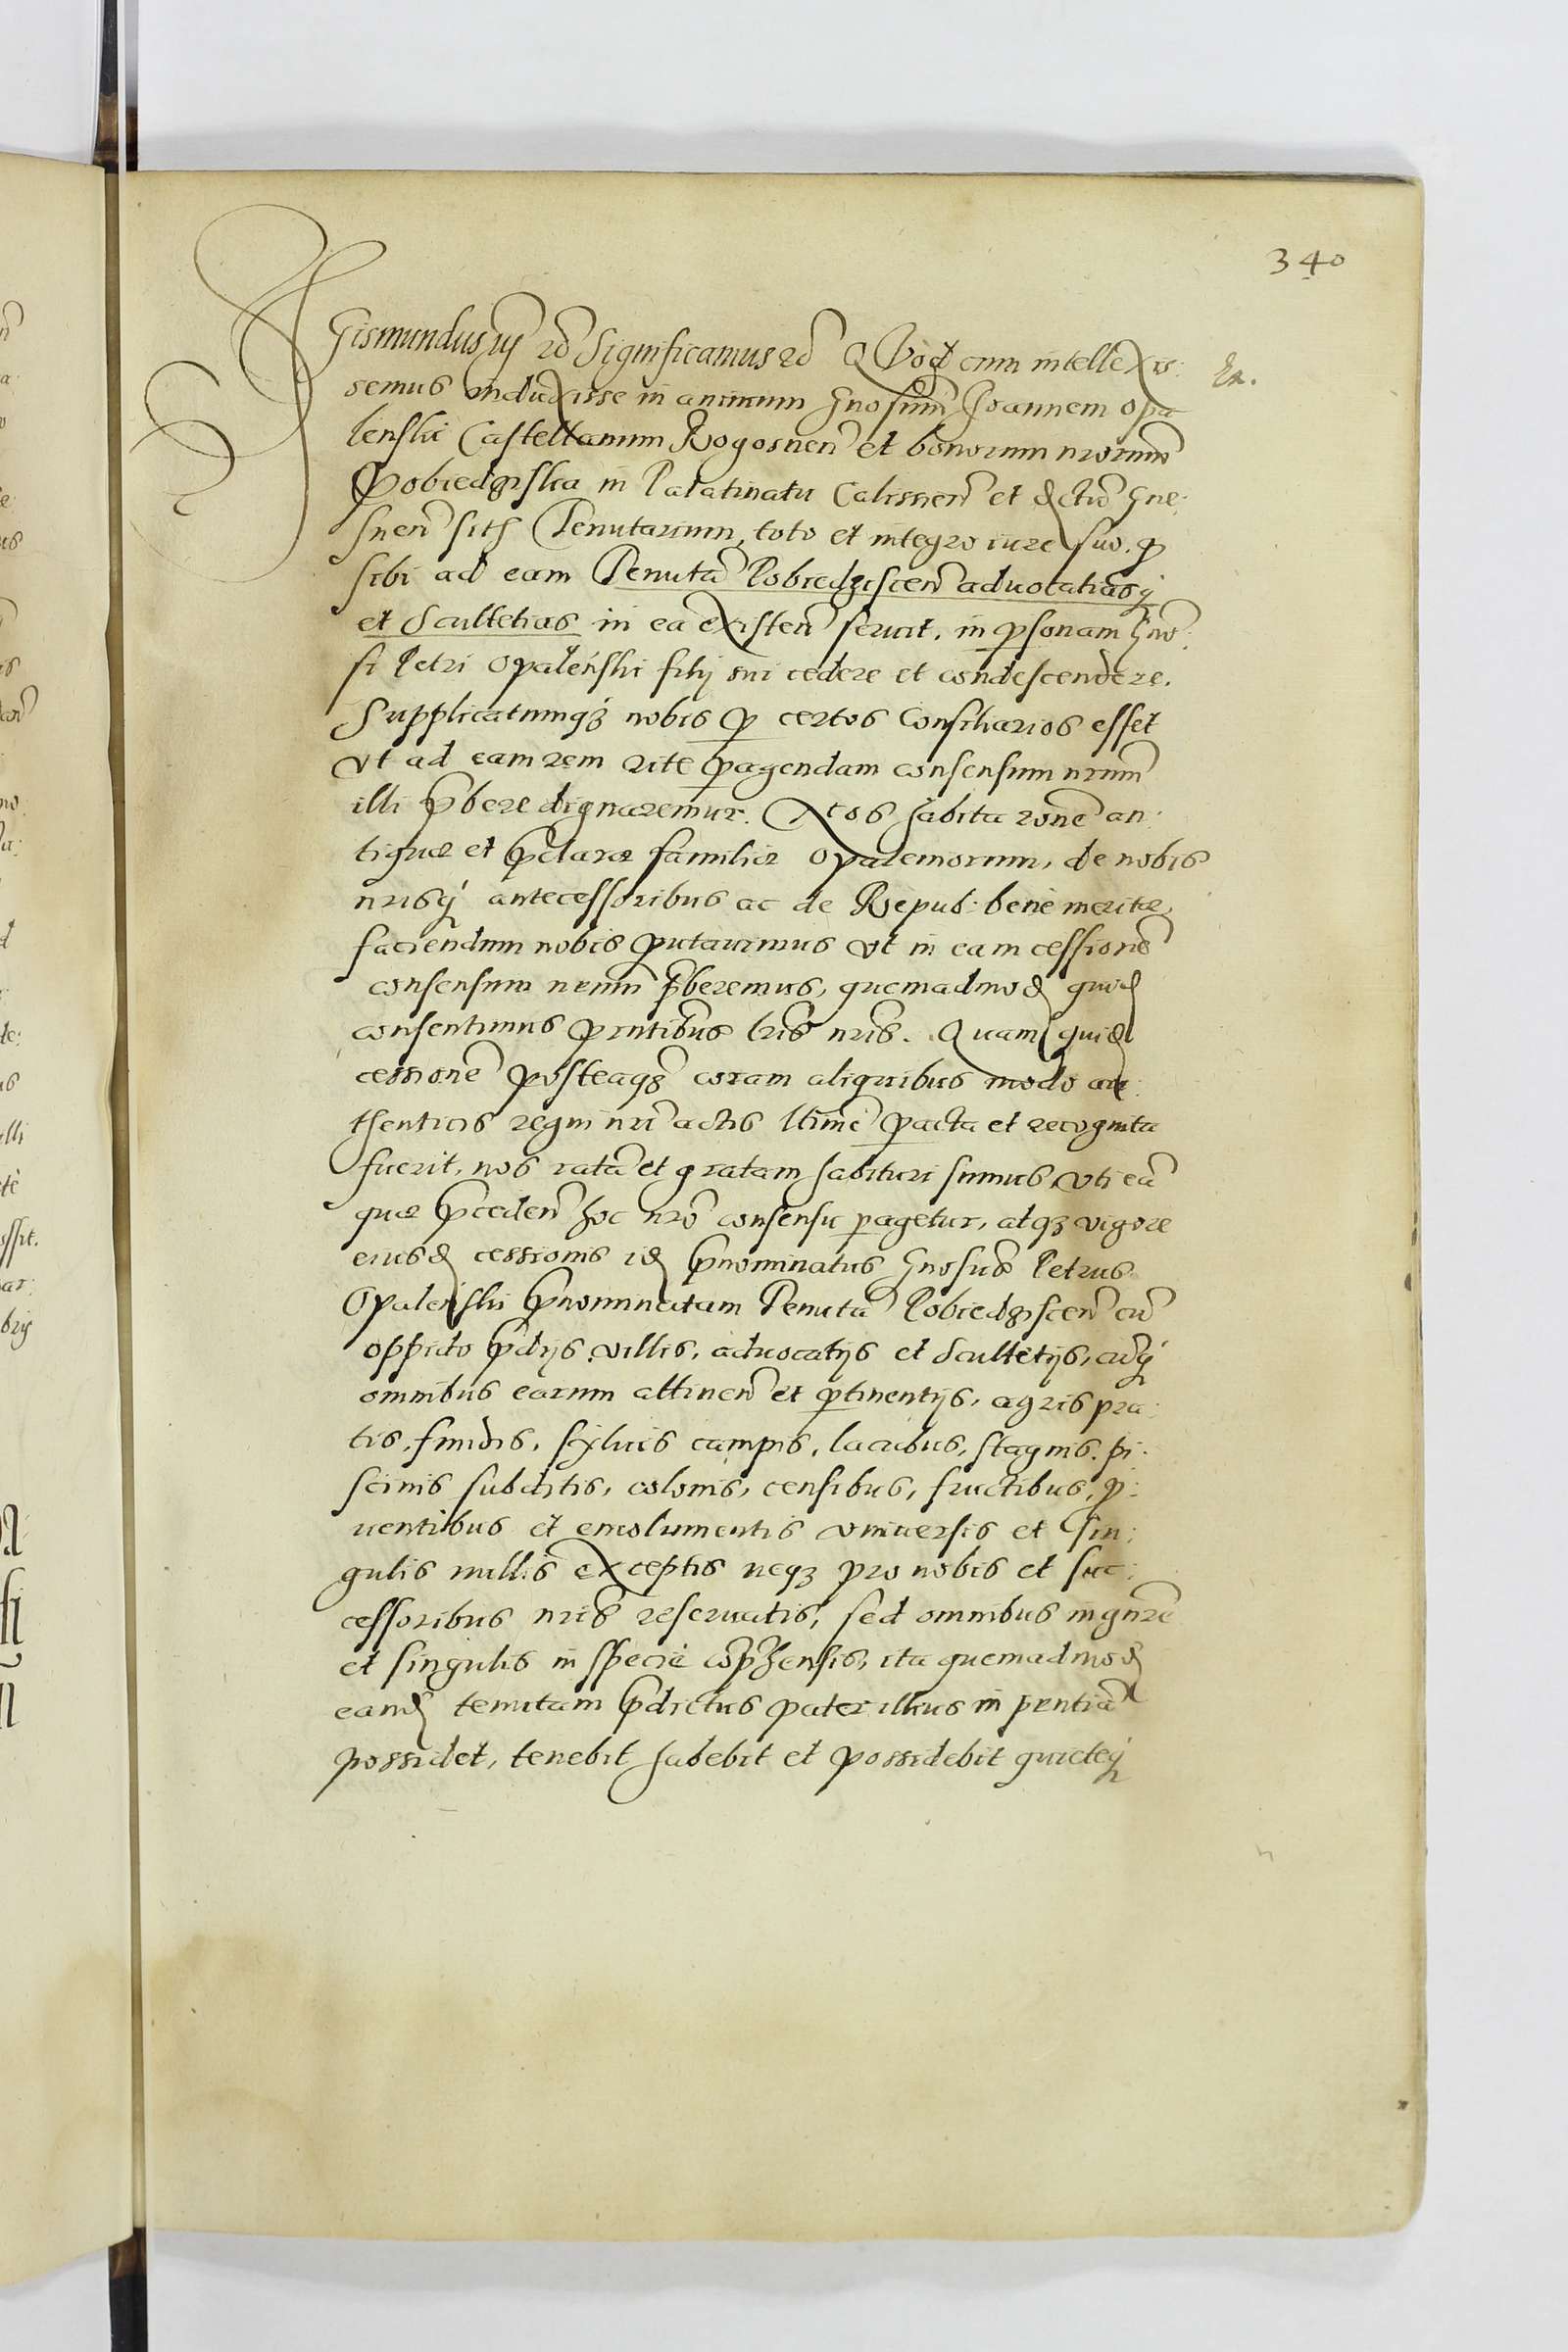 340
Sigismundus iij etc Significamus etc Quod cum intellexis:
Ex.
semus induxisse in animum Gnosum Joannem Opa
lenski Castellanum Rogosnen et bonorum nrorum
Pobiedziska in Palatinatu Calissien et dctu Gne:
snen sitis Tenutarium, toto et integro iure suo. q
sibi ad eam Tenuta Pobiedziscen aduocatiasq
et Scultetias in ea existen seruit. in psonam Gno:
si Petri Opalenski filij sui cedere et condescendere.
Supplicatumqz nobis p certos Consiliarios esset
vt ad eam rem rite pagendam consensum nrum
illi pbere dignaremur. Nos habita rone an:
tiquæ et pclaræ familiæ Opaleniorum, de nobis
nrisq antecessoribus ac de Repub: bene meritæ,
faciendum nobis putauimus vt in eam cessione
consensum nrum pberemus, quemadmod quod
consentimus pntibus lris nris. Quam quid
cessione posteaqz coram aliquibus modo au:
thenticis regni nri actis ltime pacta et recognita
fuerit, nos rata et gratam habituri sumus, vti ea
quæ pceden hoc nro consensu pagetur, atqz vigore
eiusd cessionis id pnominatus Gnosus Petrus
Opalenski pnominatam Tenuta Pobiedziscen cu
oppido pdijs villis, aduocatijs et Scultetijs, cuq
omnibus earum attinen et ptinentijs, agris pra:
tis, fundis, syluis campis, lacubus, stagnis. pi:
scinis subditis, colonis, censibus, fructibus, p:
uentibus et emolumentis vniuersis et sin:
gulis nullis exceptis neqz pro nobis et suc:
cessoribus nris reseruatis, sed omnibus in gnre
et singulis in specie comphensis, ita quemadmod
eand tenutam pdictus pater illius in pntia
possidet, tenebit habebit et possidebit quieteq